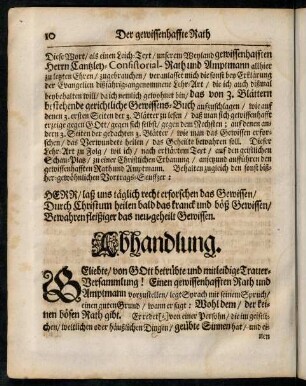 10 Der gewissenhaffte Rath
Diese Wort/ als einen Leich-Text/ unserem Weyland gewissenhafften
Herrn Cantzley- Consistorial- Rath und Amptmann allhier
zu letzten Ehren/ zugebrauchen/ veranlasset mich die sonst bey Erklärung
der Evangelien dißjährige angenommene Lehr-Art/ die ich auch dißmal
beybehalten will/ da ich nemlich gewohnet bin/ das von 3. Blättern
bestehende gerichtliche Gewissens-Buch aufzuschlagen/ wie auf
denen 3. ersten Seiten der 3. Blätter zu lesen/ daß man sich gewissenhafft
erzeige gegen GOtt/ gegen sich selbst/ gegen dem Nechsten; auf denen an-
dern 3. Seiten der gedachten 3. Blätter/ wie man das Gewissen erfor-
schen/ das Verwundete heilen/ das Geheilte bewahren soll. Dieser
Lehr-Art zu Folg/ wil ich/ nach erklärtem Text/ auf den öffentlichen
Schau-Platz/ zu einer Christlichen Erbauung/ auf und ausführen den
gewissenhafften Rath und Amptmann. Behalten zugleich den sonst biß-
her gewöhnlichen Vortrags-Seuffzer:
HERR/ laß uns täglich recht erforschen das Gewissen/
Durch Christum heilen bald das kranck und böß Gewissen/
Bewahren fleißiger das neu-geheilt Gewissen.
Abhandlung.
GEliebte/ von GOtt betrübte und mitleidige Trauer-
Versammlung! Einen gewissenhafften Rath und
Amptmann vorzustellen/ legt Syrach mit seinem Spruch/
einen guten Grund/ wann er sagt: Wohl dem/ der kei-
nen bösen Rath gibt. Er redet von einer Persohn/ die im geistli-
chen/ weltlichen oder häußlichen Dingen/ geübte Sinnen hat/ und ei-
nen